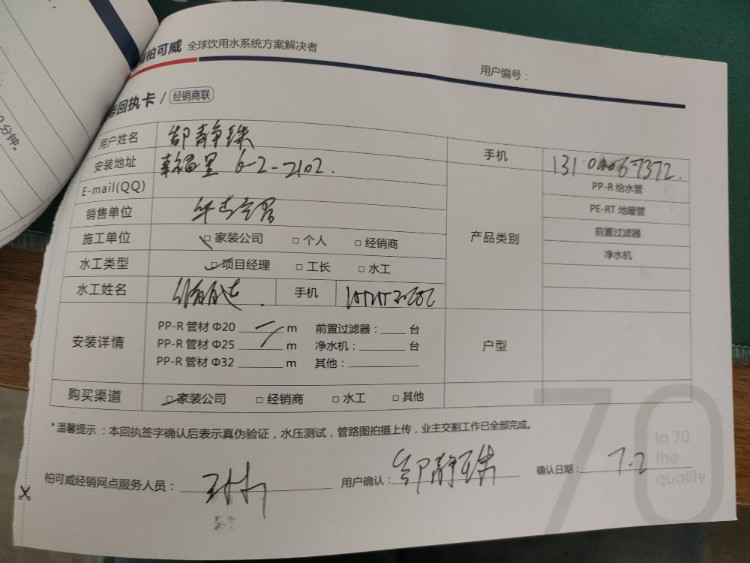 柏可威 全球饮用水系统方案解决者
用户编号：
回执卡 / 经销商联
用户姓名 邹静珠 手机
安装地址 6-2-2102. 产品类别 PP-R 给水管
E-mail(QQ) PE-RT 地暖管
销售单位 前置过滤器
施工单位 □ 家装公司 □ 个人 □ 经销商 净水机
水工类型 □ 项目经理 □ 工长 □ 水工
水工姓名 手机
安装详情 PP-R 管材 Φ20 m 前置过滤器： 台 户型
PP-R 管材 Φ25 m 净水机： 台
PP-R 管材 Φ32 m 其他：
购买渠道 □ 家装公司 □ 经销商 □ 水工 □ 其他
*温馨提示：本回执签字确认后表示真伪验证，水压测试，管路图拍摄上传，业主交割工作已全部完成。
柏可威经销网点服务人员： 用户确认： 邹静珠 确认日期： 7.2
70
in 70
the
quality
分钟。